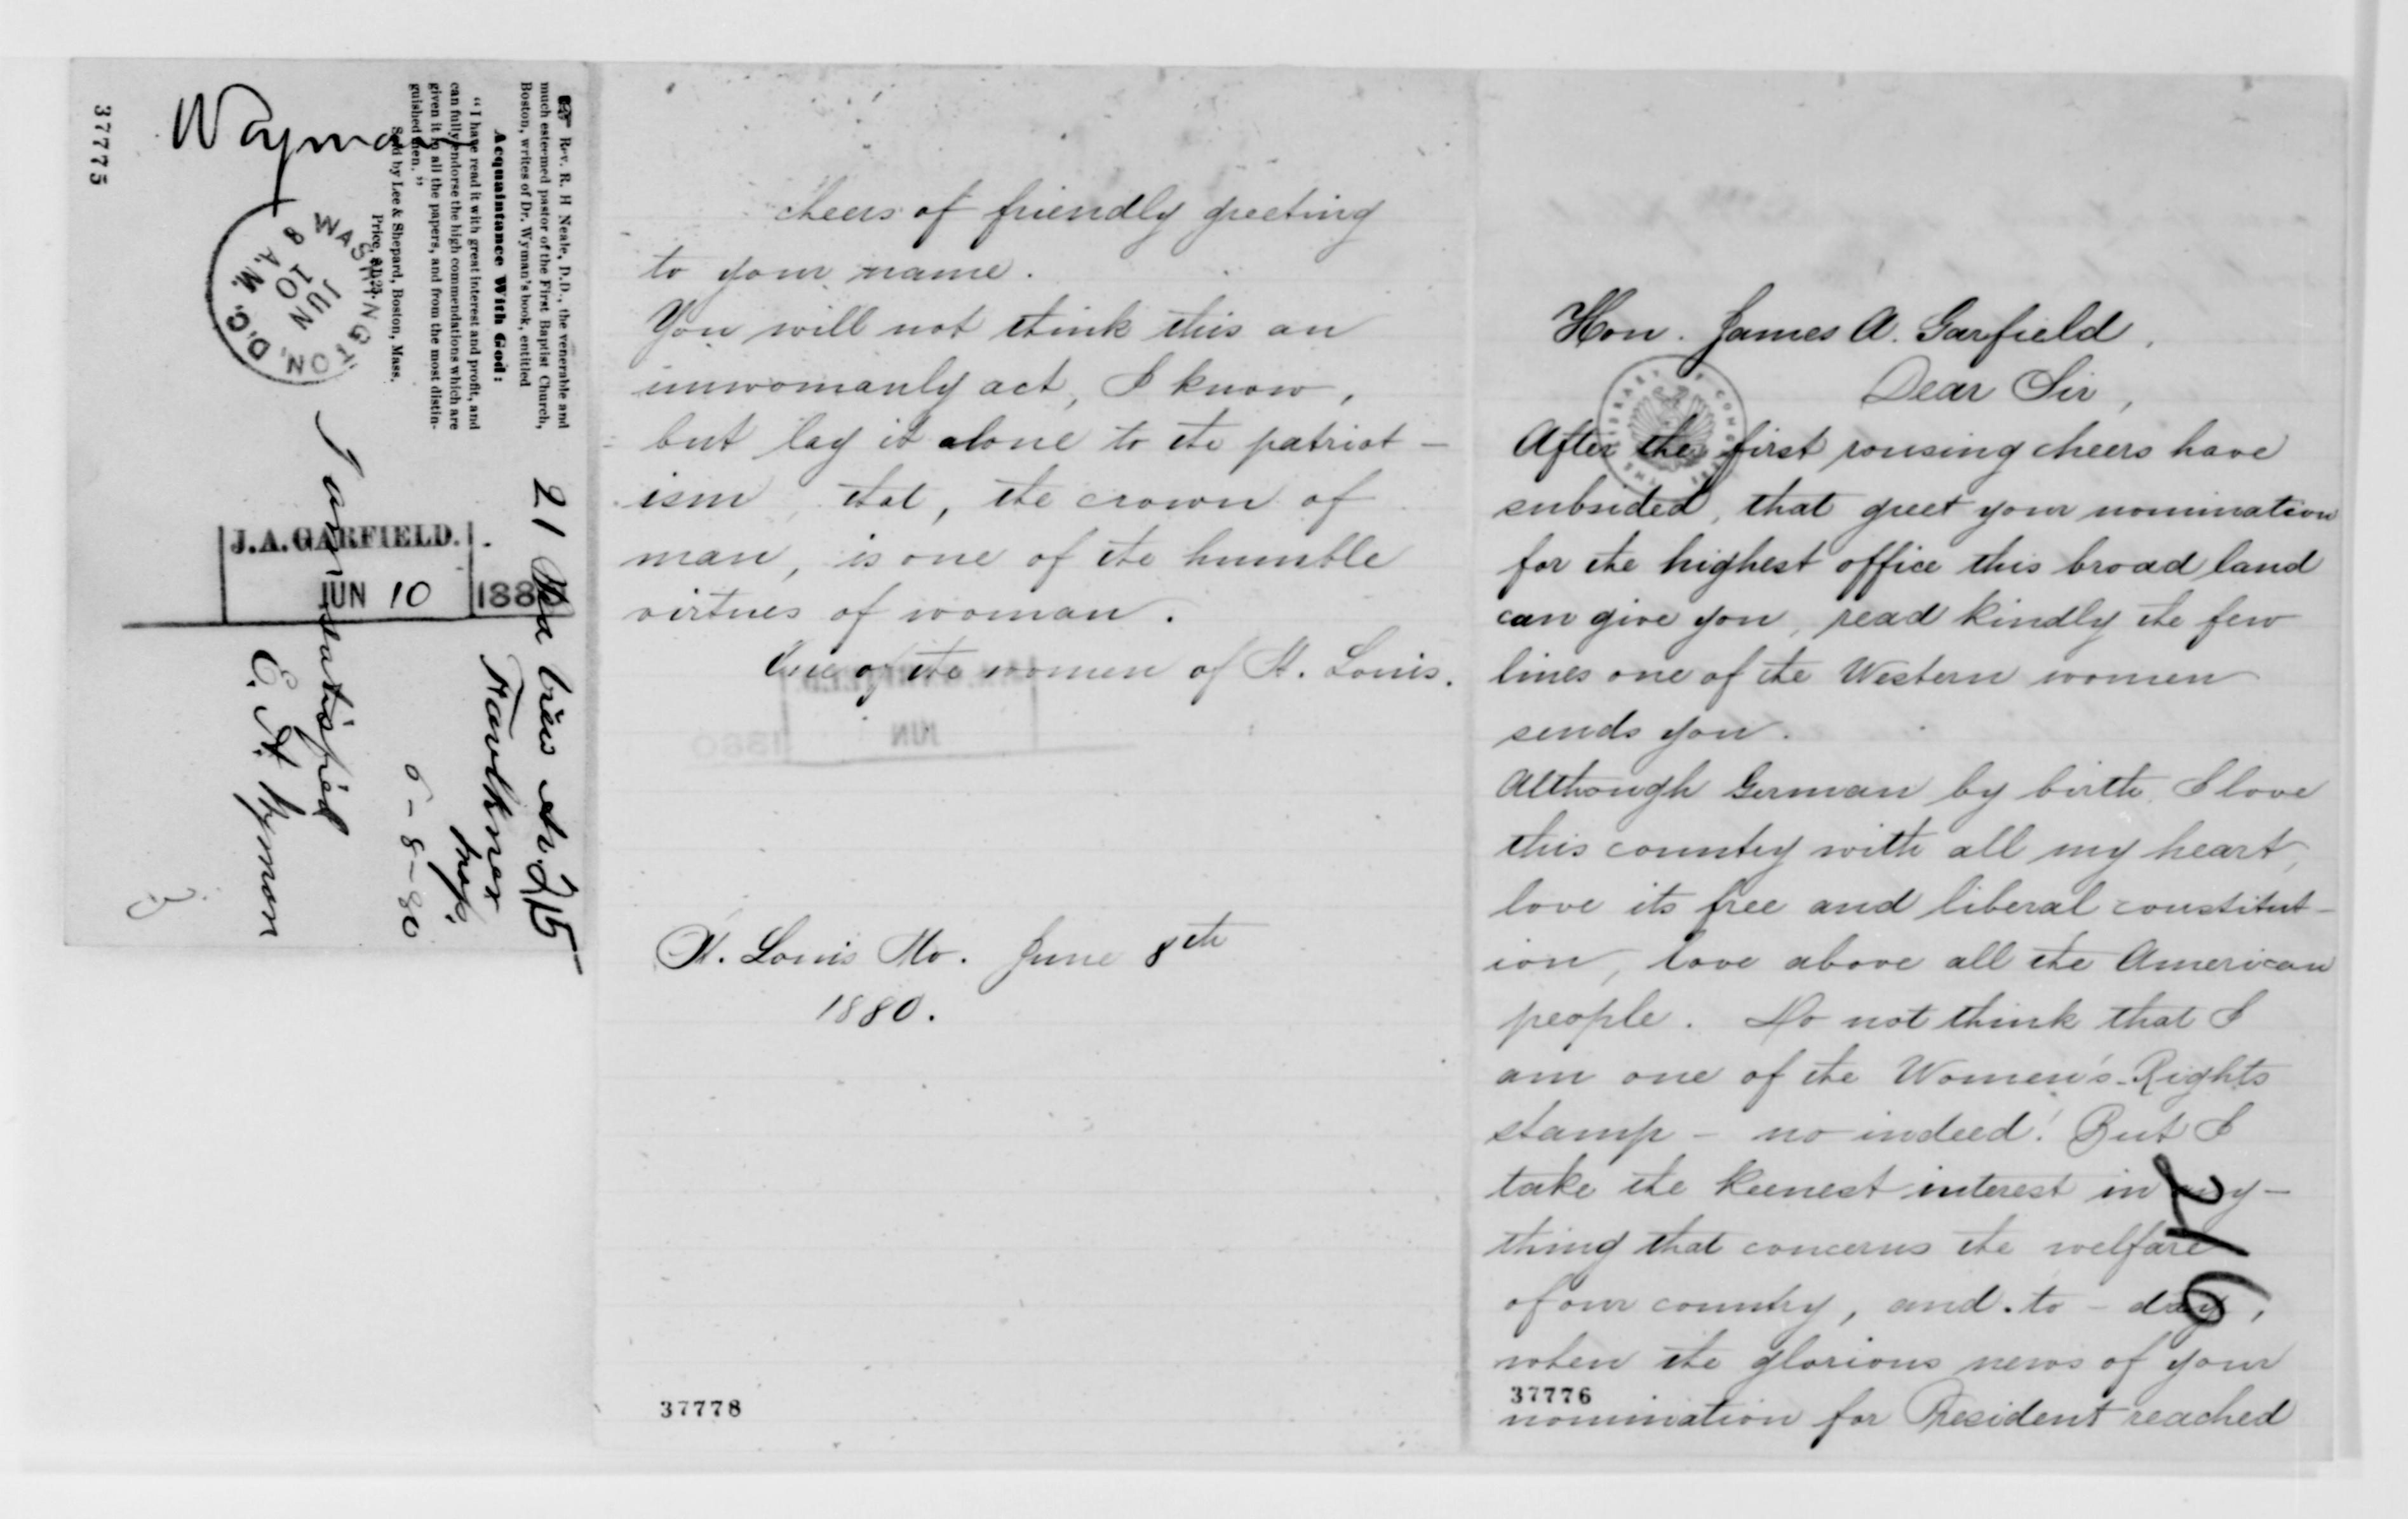 37775
Wayman
WASHINGTON, D.C.
JUN
10
8 A.M.
Rev. R. H Neale, D.D., the venerable and
much esteemed pastor of the First Baptist Church,
Boston, writes of Dr. Wyman's book, entitled
Acquaintance With God:
"I have read it with great interest and profit, and
can fully endorse the high commendations which are
given it in all the papers, and from the most distin-
guished men."
Sold by Lee & Shepard, Boston, Mass.
Price, $1.25.
21
215
6-8-80
I am satisfied
C. A. Wyman
J.A. GARFIELD.
JUN 10 1880
3
cheers of friendly greeting
to your name.
You will not think this an
unwomanly act, I know,
but lay it alone to the patriot-
ism, that, the crown of
man, is one of the humble
virtues of woman.
One of the women of St. Louis.
JUN
1880
St. Louis Mo. June 8th
1880.
37778
Hon. James A. Garfield,
Dear Sir,
After the first rousing cheers have
subsided, that greet your nomination
for the highest office this broad land
can give you, read kindly the few
lines one of the Western women
sends you.
Although German by birth, I love
this country with all my heart,
love its free and liberal constitut-
ion, love above all the American
people. Do not think that I
am one of the Women's-Rights
stamp - no indeed! But I
take the keenest interest in any-
thing that concerns the welfare
of our country, and to-day,
when the glorious news of your
37776
nomination for President reached